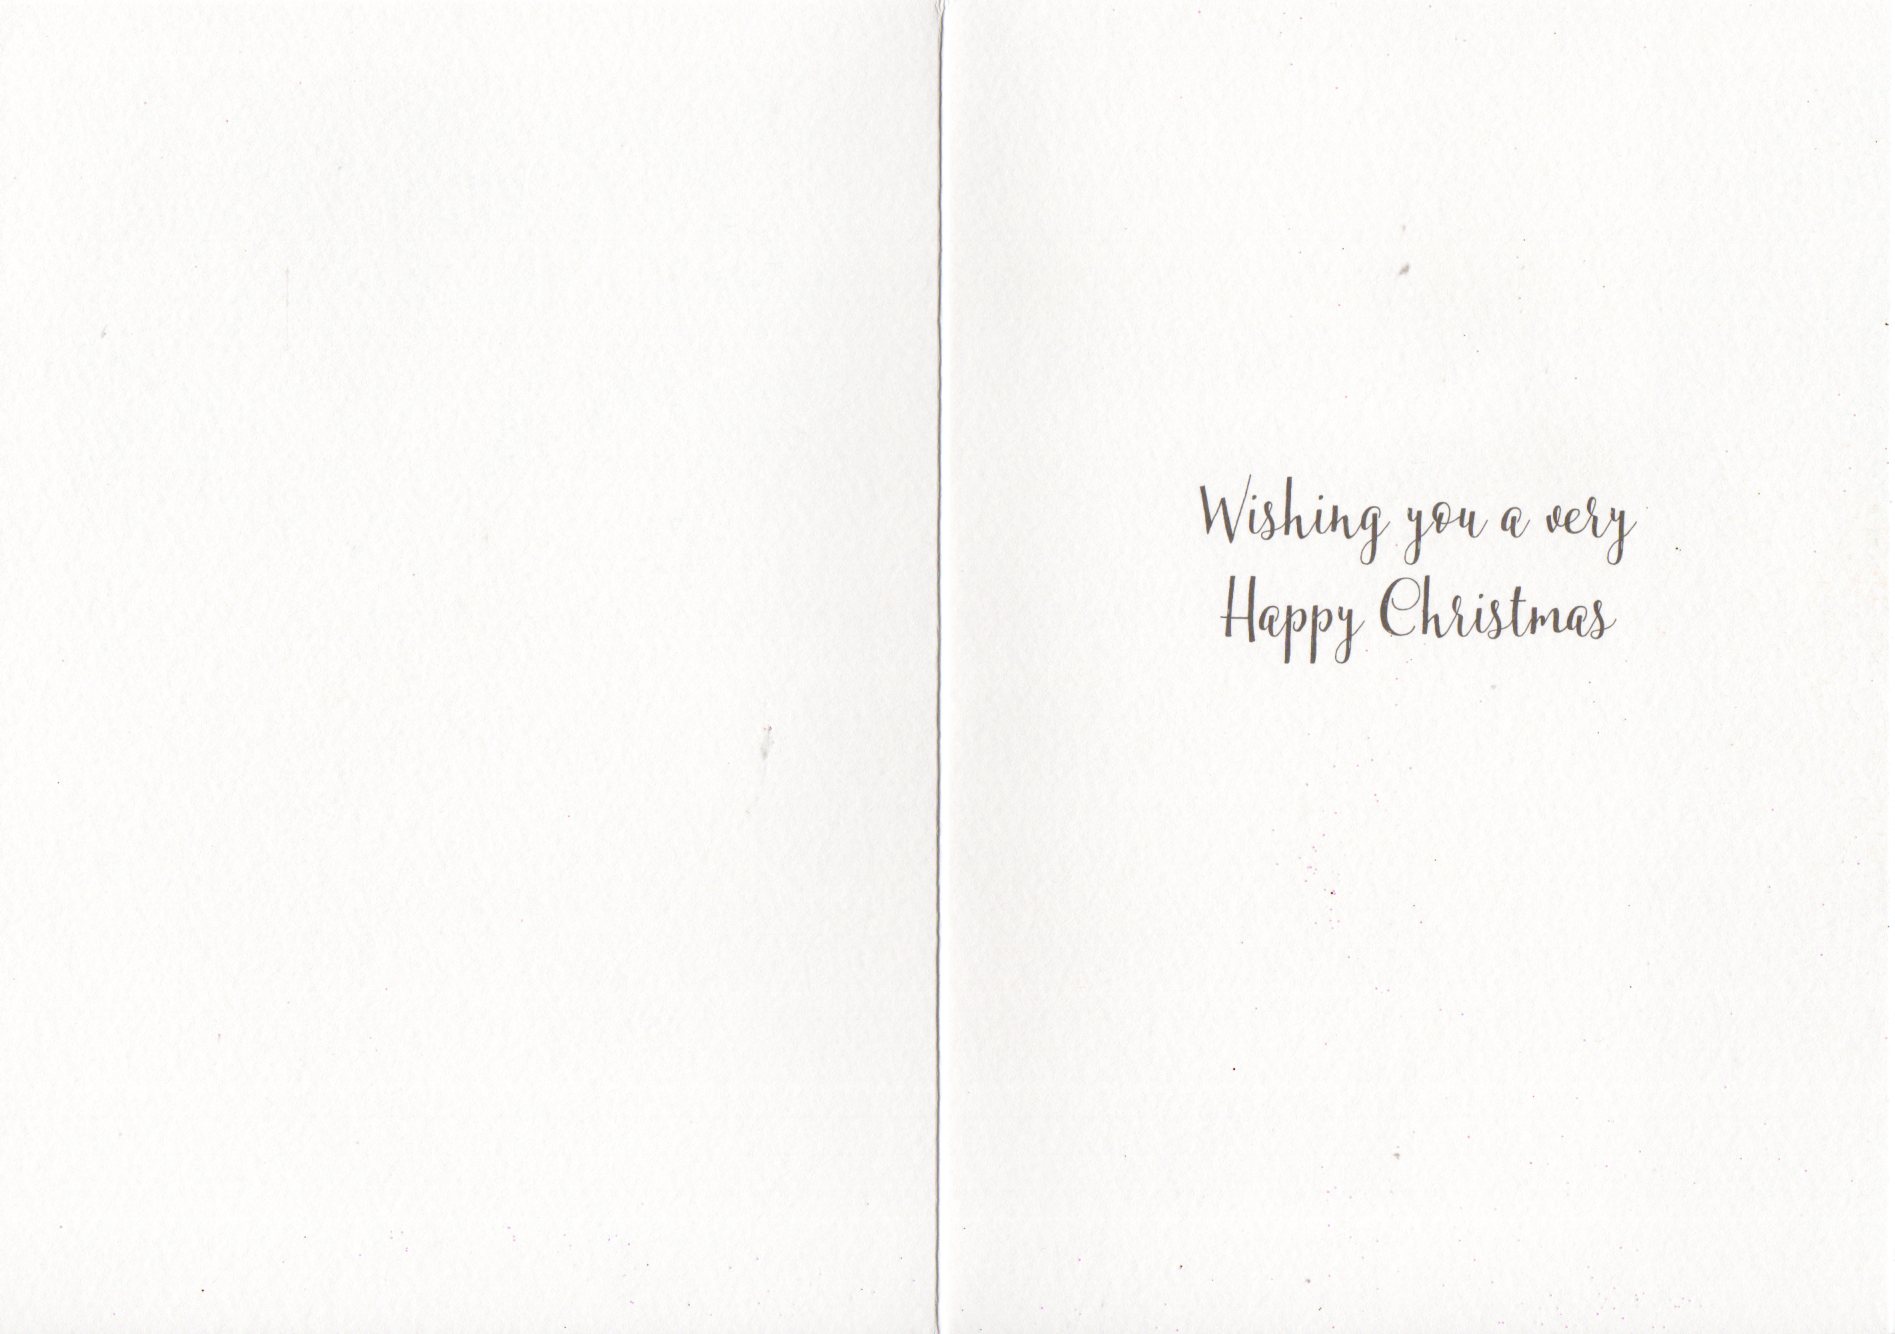 Wishing you a very
Happy Christmas